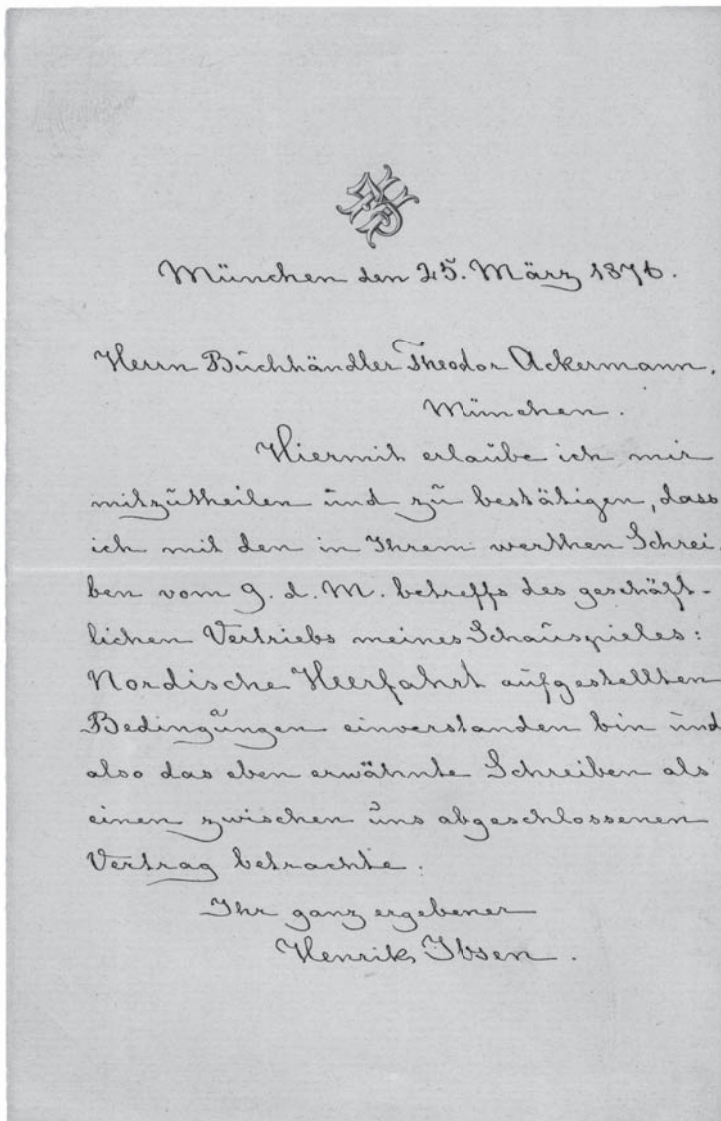 München den 25. März 1876.
Herrn Buchhändler Theodor Ackermann,
München.
Hiermit erlaube ich mir
mitzutheilen und zu bestätigen, dass
ich mit den in Ihrem werthen Schrei-
ben vom 9. d. M. betreffs des geschäft-
lichen Vertriebs meines Schauspieles:
Nordische Heerfahrt aufgestellten
Bedingungen einverstanden bin und
also das eben erwähnte Schreiben als
einen zwischen uns abgeschlossenen
Vertrag betrachte.
Ihr ganz ergebener
Henrik Ibsen.